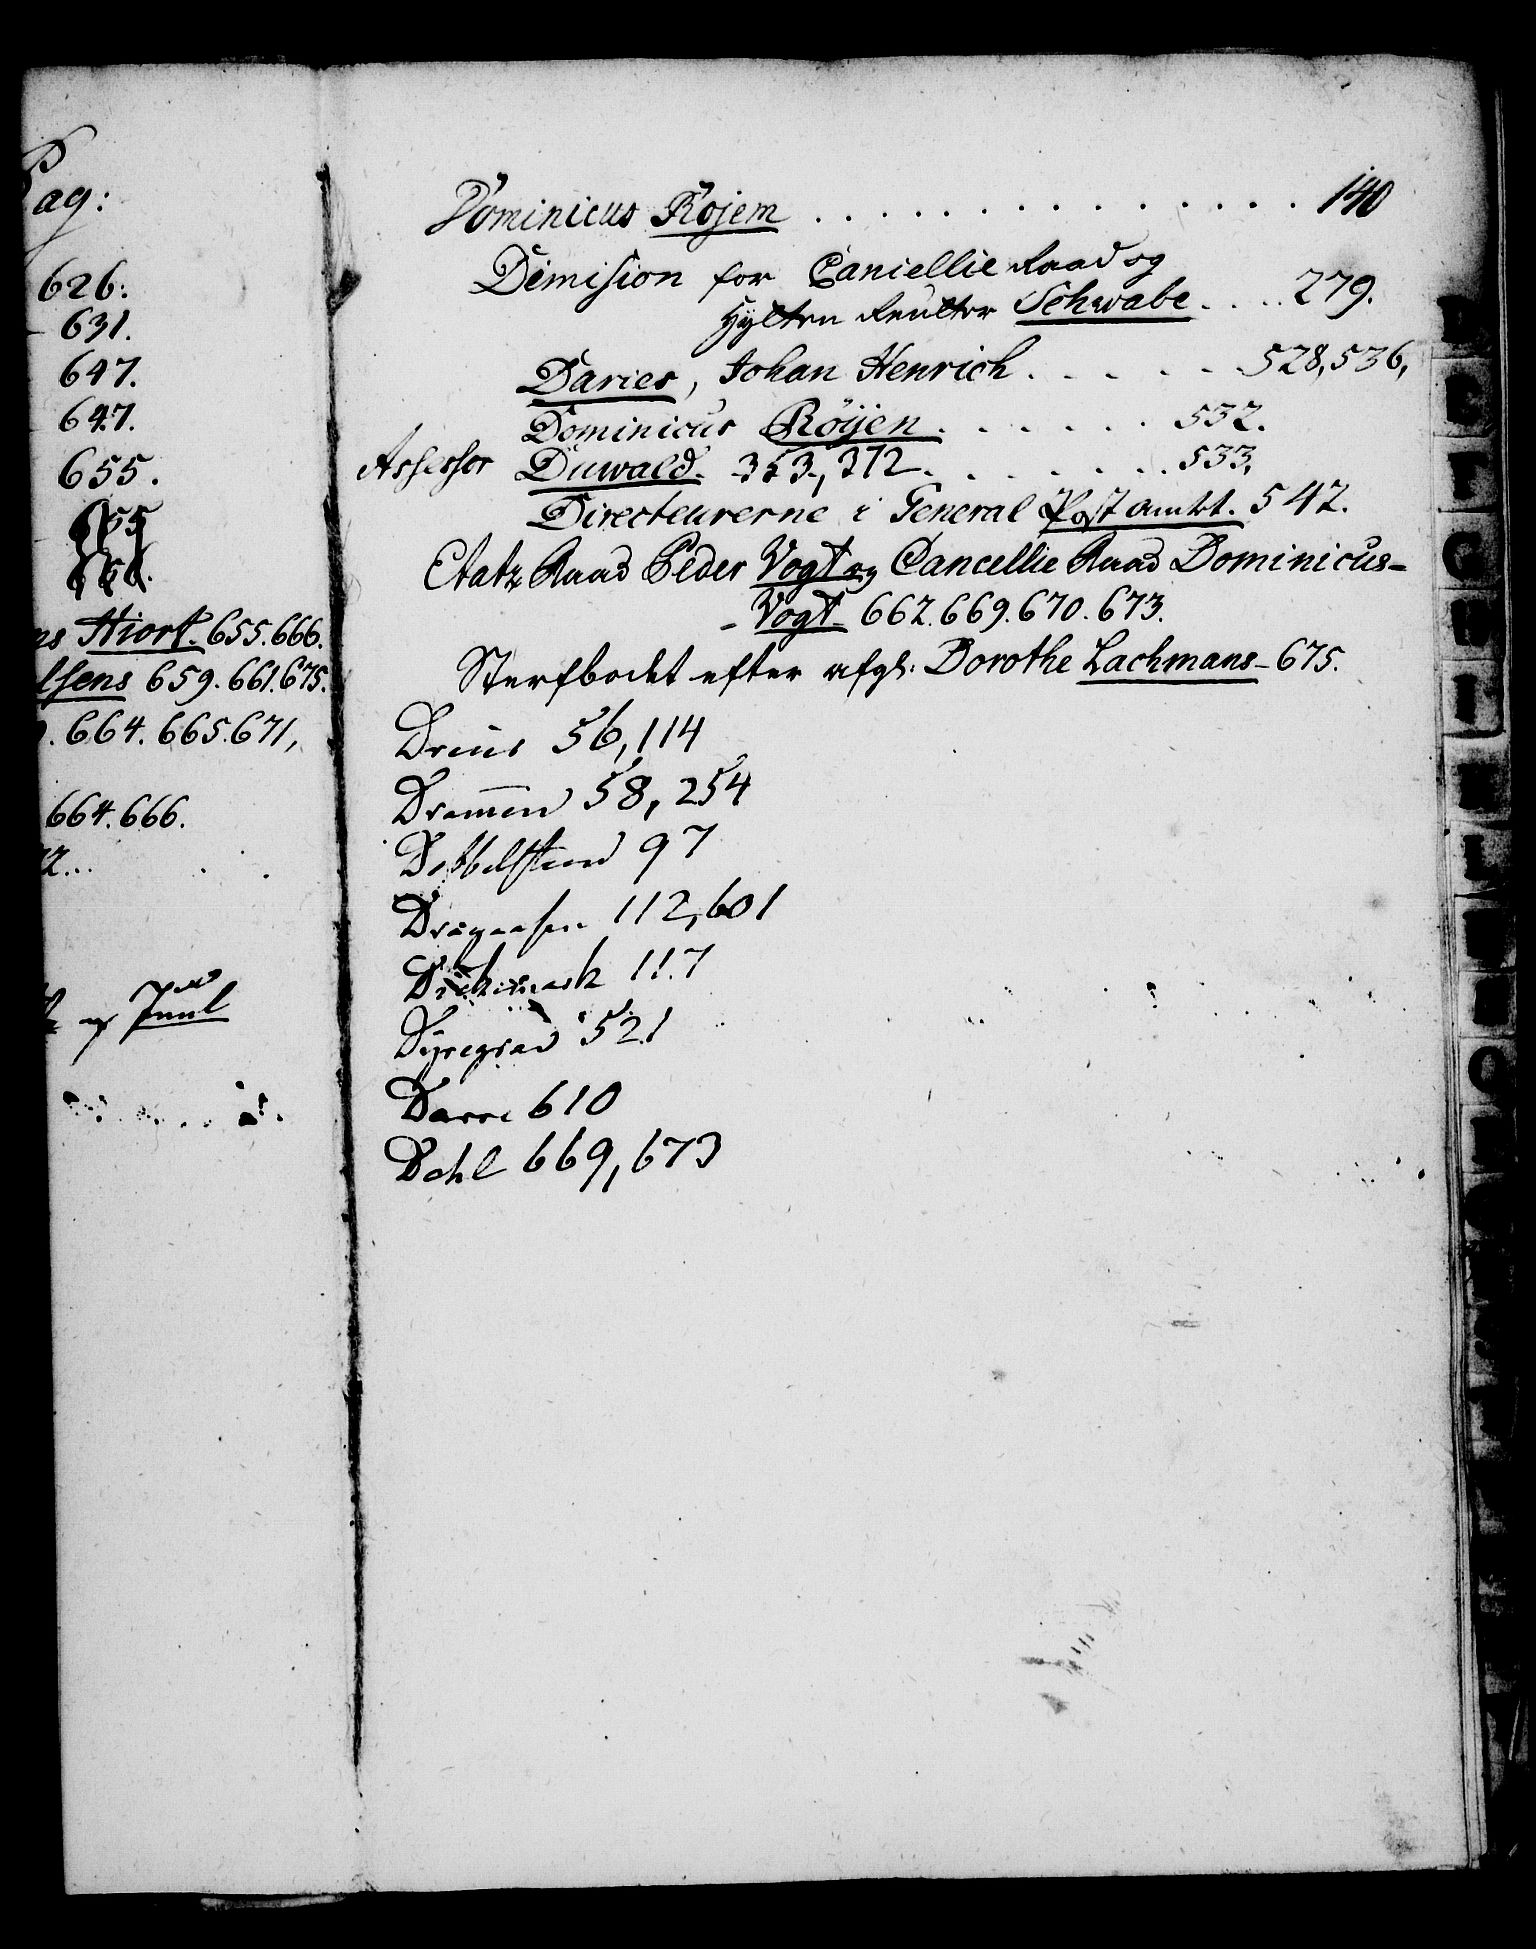 Pag:
626.
631.
647.
647.
655.
655
656.
ns Hiort. 655.666.
lsens 659.661.675.
. 664. 665.671,
664.666.
72...
og Juul
Dominicus Röjem . . . . . . . . . . . . . . 140
Dimission for Cancellie Raad og
Schwabe . . . . 279.
Daries, Johan Henrich . . . . . 528,536,
Dominicus Röyen . . . . . . . 532.
Assessor Duwald. 353, 372 . . . . . . . . 533,
Directeurerne i General Post amtet. 542.
Etatz Raad Peder Vogt og Cancellie Raad Dominicus-
- Vogt 662.669.670.673.
Sterfbodet efter afgl: Dorothe Lachmans - 675.
Dreus 56,114
Drammen 58, 254
97
112,601
117
Dyregrav 521
Darre 610
Dahl 669,673
D
E
F
G
H
I
K
L
M
N
O